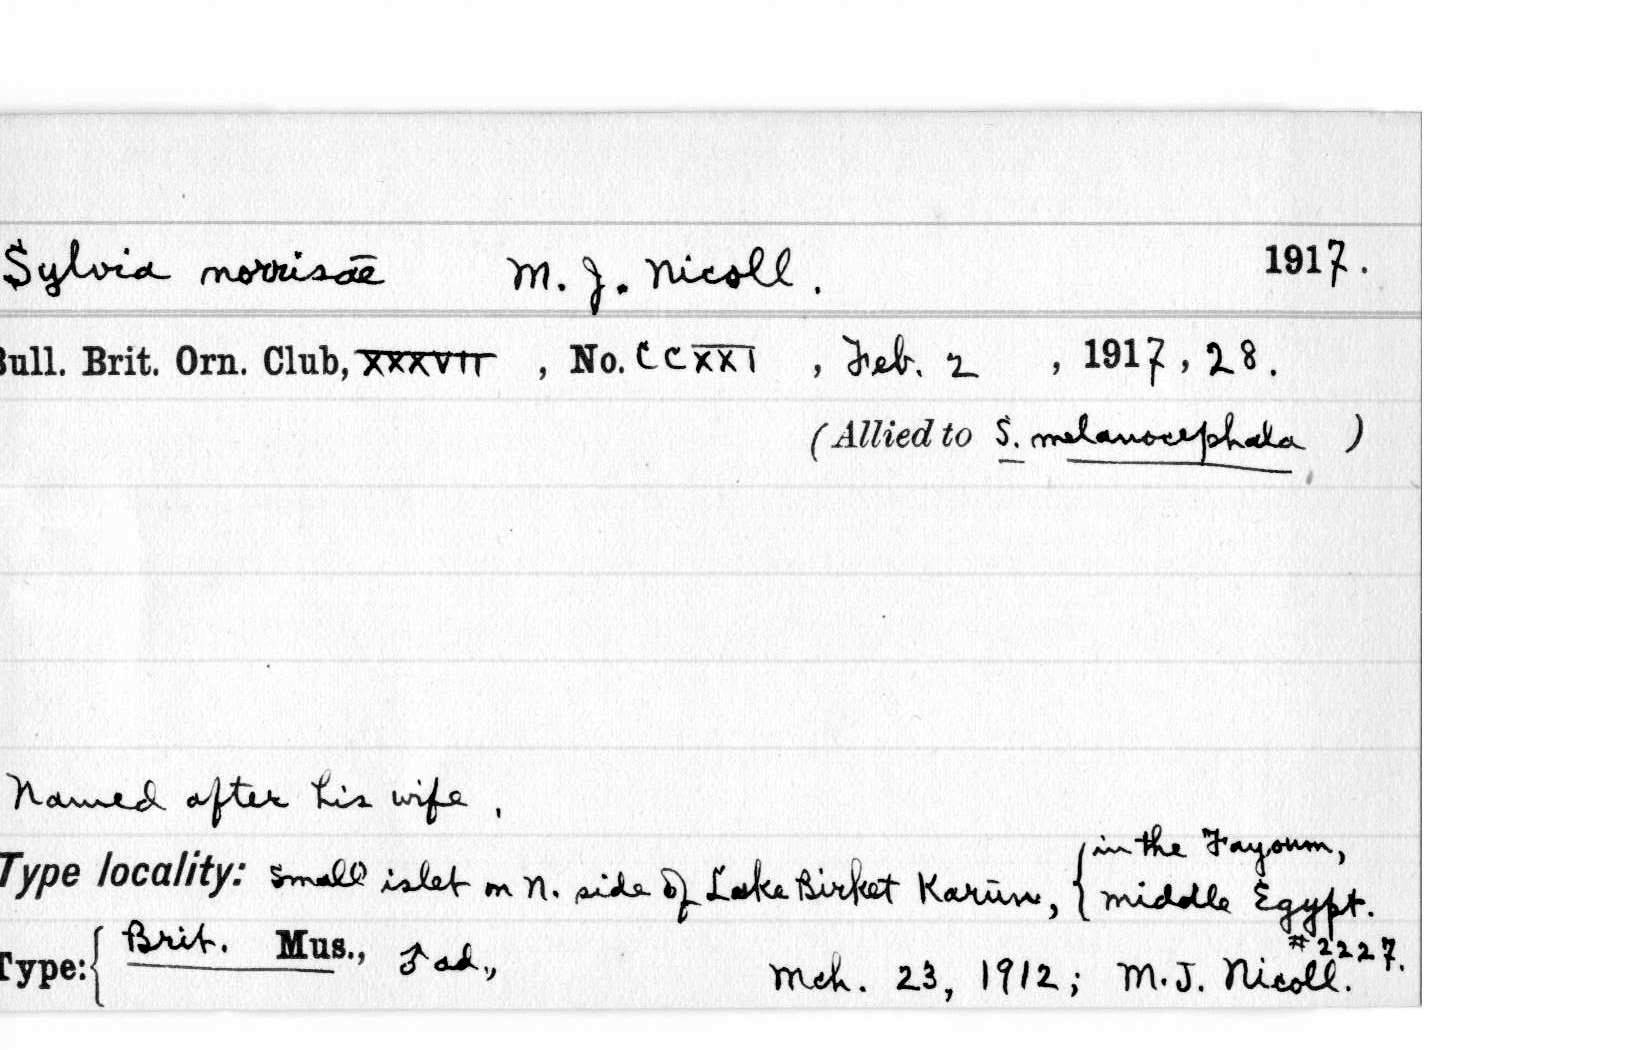 Sylvia norrisae M. J. Nicoll. 1917.
Bull. Brit. Orn. Club, XXXVII, No. CCXXI, Feb. 2, 1917, 28.
(Allied to S. melanocephala)
Named after his wife.
Type locality: Small islet on N. side of Lake Birket Karūn, {in the Fayoum,
middle Egypt.
Type: { Brit. Mus., ♂ ad., Mch. 23, 1912; M.J. Nicoll. #2227.